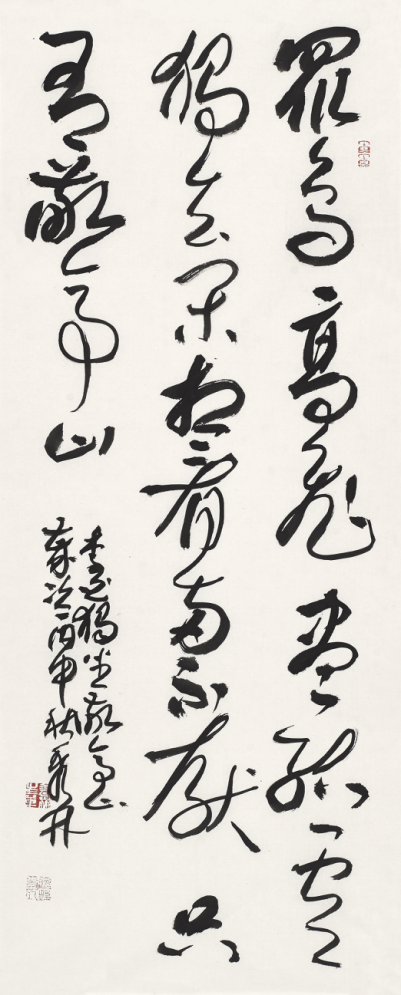 眾鳥高飛盡孤雲
獨去閑相看兩不厭只
有敬亭山
李白獨坐敬亭山
歲次丙申秋